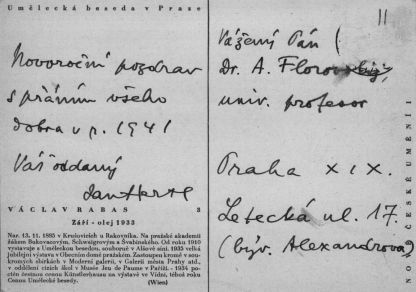 Umělecká beseda v Praze
Novoroční pozdrav
s přáním všeho
dobra v r. 1941
Váš oddaný
Jan Hertl
VÁCLAV RABAS 3
Září - olej 1933
Nar. 13. 11. 1885 v Krušovicích u Rakovníka. Na pražské akademii
žákem Bukovacovým, Schwaigerovým a Švabinského. Od roku 1910
vystavuje s Uměleckou besedou, souborně v Alšově síni. 1933 velká
jubilejní výstava v Obecním domě pražském. Zastoupen kromě v sou-
kromých sbírkách v Moderní galerii, v Galerii města Prahy atd.,
v oddělení cizích škol v Musée Jeu de Paume v Paříži. - 1934 poc-
těn zestnou cenou Künstlerhausu na výstavě ve Vídni, téhož roku
Cenou Umělecké besedy. (Wien)
11
Vážený Pán
Dr. A. Florovskij,
univ. profesor
Praha XIX.
Letecká ul. 17.
(býv. Alexandrova)
NOVÉ ČESKÉ UMĚNÍ I